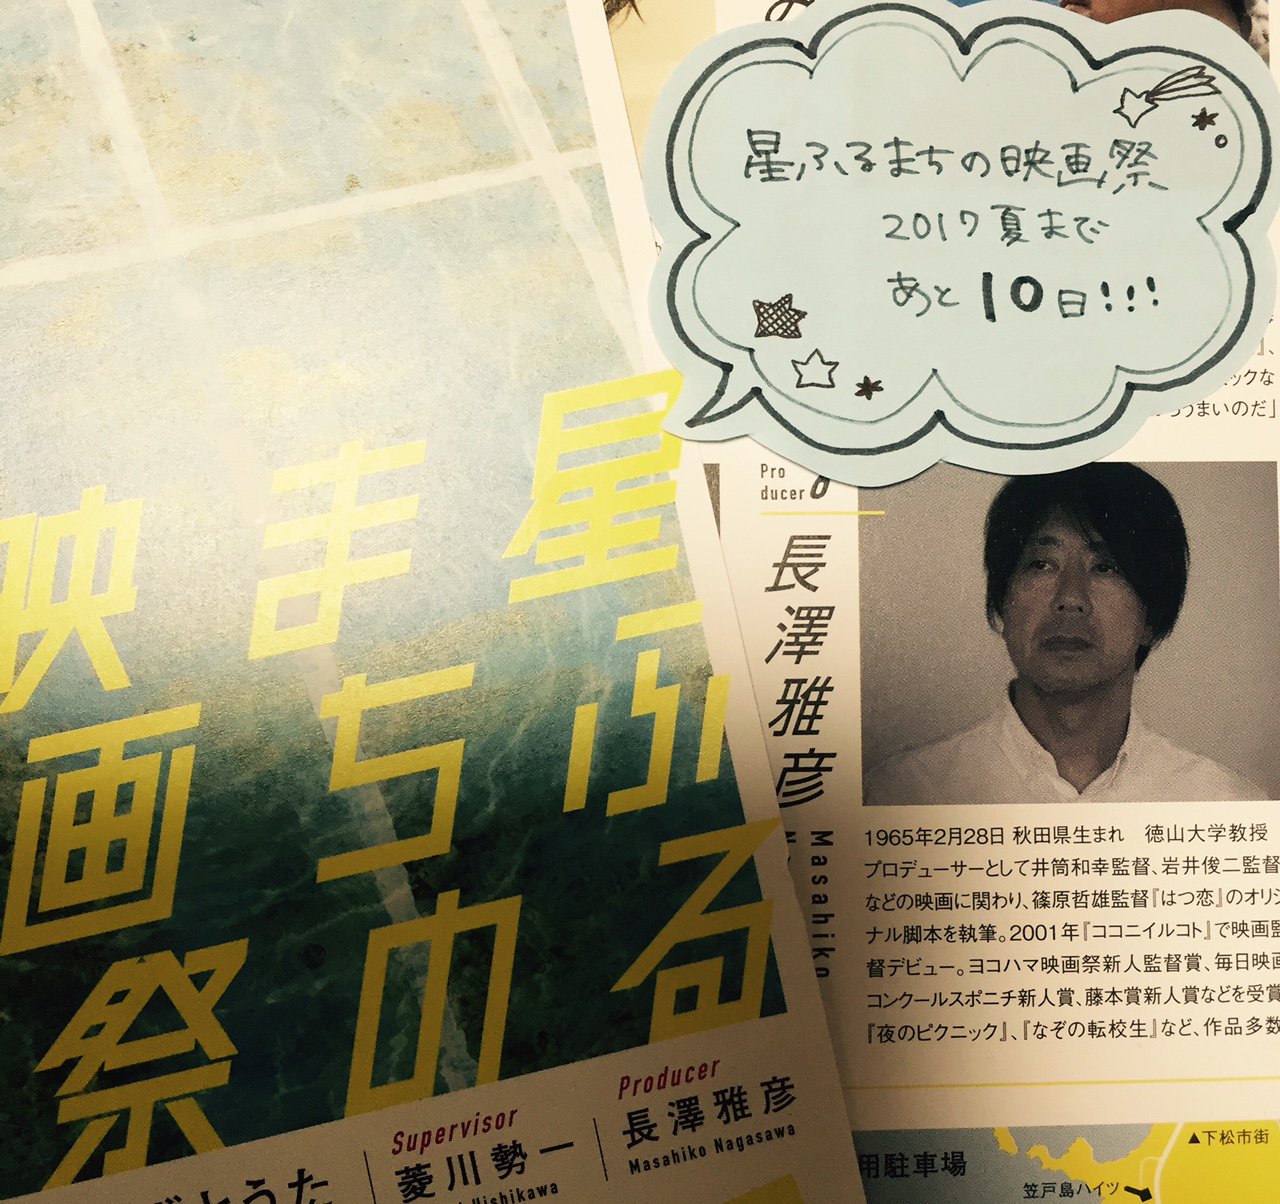 星ふるまちの映画祭
2017夏まで
あと10日!!!
星ふる
まちの
映画祭
Supervisor
菱川勢一
Hishikawa
Producer
長澤雅彦
Masahiko Nagasawa
うまいのだ」
Pro
ducer
長澤雅彦
Masahiko
1965年2月28日 秋田県生まれ 徳山大学教授
プロデューサーとして井筒和幸監督、岩井俊二監督
などの映画に関わり、篠原哲雄監督『はつ恋』のオリジ
ナル脚本を執筆。2001年『ココニイルコト』で映画監
督デビュー。ヨコハマ映画祭新人監督賞、毎日映画
コンクールスポニチ新人賞、藤本賞新人賞などを受賞
『夜のピクニック』、『なぞの転校生』など、作品多数
用駐車場
▲下松市街
笠戸島ハイツ